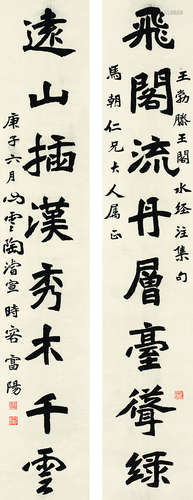 王勃滕王閣水经注集句
飛閣流丹層臺聳緑
馬朝仁兄大人属正
遠山插漢秀木千雲
庚子六月心雲陶濬宣時客富陽